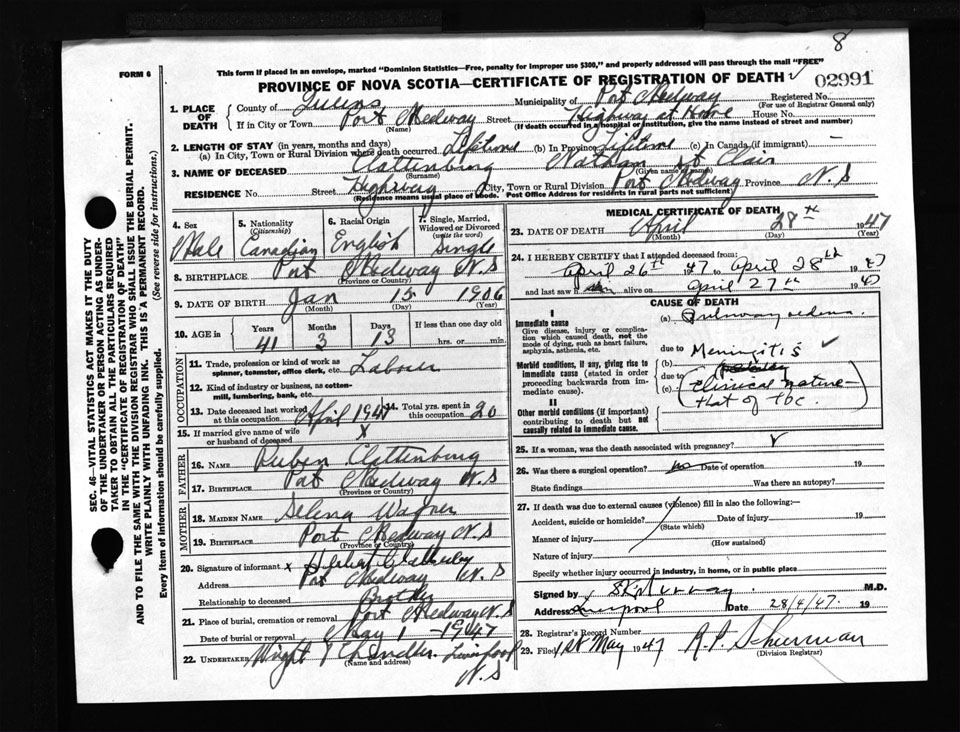 8
FORM 6
This form if placed in an envelope, marked "Dominion Statistics—Free, penalty for improper use $300," and properly addressed will pass through the mail "FREE"
PROVINCE OF NOVA SCOTIA—CERTIFICATE OF REGISTRATION OF DEATH ✓ 02991
1. PLACE OF DEATH County of Queens Municipality of Port Medway Registered No.
(For use of Registrar General only)
If in City or Town Port Medway Street Highway at Home House No.
(Name) (If death occurred in a hospital or institution, give the name instead of street and number)
2. LENGTH OF STAY (in years, months and days)
(a) In City, Town or Rural Division where death occurred Lifetime (b) In Province Lifetime (c) In Canada (if immigrant) —
3. NAME OF DECEASED Clattenburg Nathan St Clair
(Surname) (Given name or names)
RESIDENCE No. Street Highway City, Town or Rural Division Port Medway Province N.S
(Residence means usual place of abode. Post Office Address for residents in rural parts not sufficient)
4. Sex Male
5. Nationality (Citizenship) Canadian
6. Racial Origin English
7. Single, Married, Widowed or Divorced (write the word) Single
8. BIRTHPLACE Port Medway N.S
(Province or Country)
9. DATE OF BIRTH Jan 15 1906
(Month) (Day) (Year)
10. AGE in Years 41 Months 3 Days 13 If less than one day old hrs. or min.
OCCUPATION
11. Trade, profession or kind of work as spinner, teamster, office clerk, etc. Laborer
12. Kind of industry or business, as cotten-mill, lumbering, bank, etc.
13. Date deceased last worked at this occupation April 1947 14. Total yrs. spent in this occupation 20
15. If married give name of wife or husband of deceased X
FATHER
16. NAME Ruben Clattenburg
17. BIRTHPLACE Port Medway N.S
(Province or Country)
MOTHER
18. MAIDEN NAME Selena Wagner
19. BIRTHPLACE Port Medway N.S
(Province or Country)
20. Signature of informant x
Address Port Medway N.S
Relationship to deceased Brother
21. Place of burial, cremation or removal Port Medway N.S
Date of burial or removal May 1 — 1947
22. UNDERTAKER Wright & Chandler Liverpool
(Name and address)
N.S
MEDICAL CERTIFICATE OF DEATH
23. DATE OF DEATH April 28th 1947
(Month) (Day) (Year)
24. I HEREBY CERTIFY that I attended deceased from:
April 26th 1947 to April 28th 1947
and last saw him alive on April 27th 1947
CAUSE OF DEATH
I
Immediate cause
Give disease, injury or complication which caused death, not the mode of dying, such as heart failure, asphyxia, asthenia, etc.
(a) Pulmonary oedema
due to
Morbid conditions, if any, giving rise to immediate cause (stated in order proceeding backwards from immediate cause).
(b) Meningitis ✓
due to
(c) (Clinical nature — that of tbc.)
II
Other morbid conditions (if important) contributing to death but not causally related to immediate cause.
25. If a woman, was the death associated with pregnancy? ✓
26. Was there a surgical operation? no Date of operation 19
State findings Was there an autopsy?
27. If death was due to external causes (violence) fill in also the following:—
Accident, suicide or homicide? Date of injury 19
(State which)
Manner of injury
(How sustained)
Nature of injury
Specify whether injury occurred in industry, in home, or in public place
Signed by Murray M.D.
Address Liverpool Date 28/4/47. 19
28. Registrar's Record Number
29. Filed 1st May 1947 R.P. Schurman
(Division Registrar)
SEC. 46—VITAL STATISTICS ACT MAKES IT THE DUTY
OF THE UNDERTAKER OR PERSON ACTING AS UNDER-
TAKER TO OBTAIN ALL THE PARTICULARS REQUIRED
IN THE "CERTIFICATE OF REGISTRATION OF DEATH"
AND TO FILE THE SAME WITH THE DIVISION REGISTRAR WHO SHALL ISSUE THE BURIAL PERMIT.
WRITE PLAINLY WITH UNFADING INK. THIS IS A PERMANENT RECORD.
Every item of information should be carefully supplied. (See reverse side for instructions.)